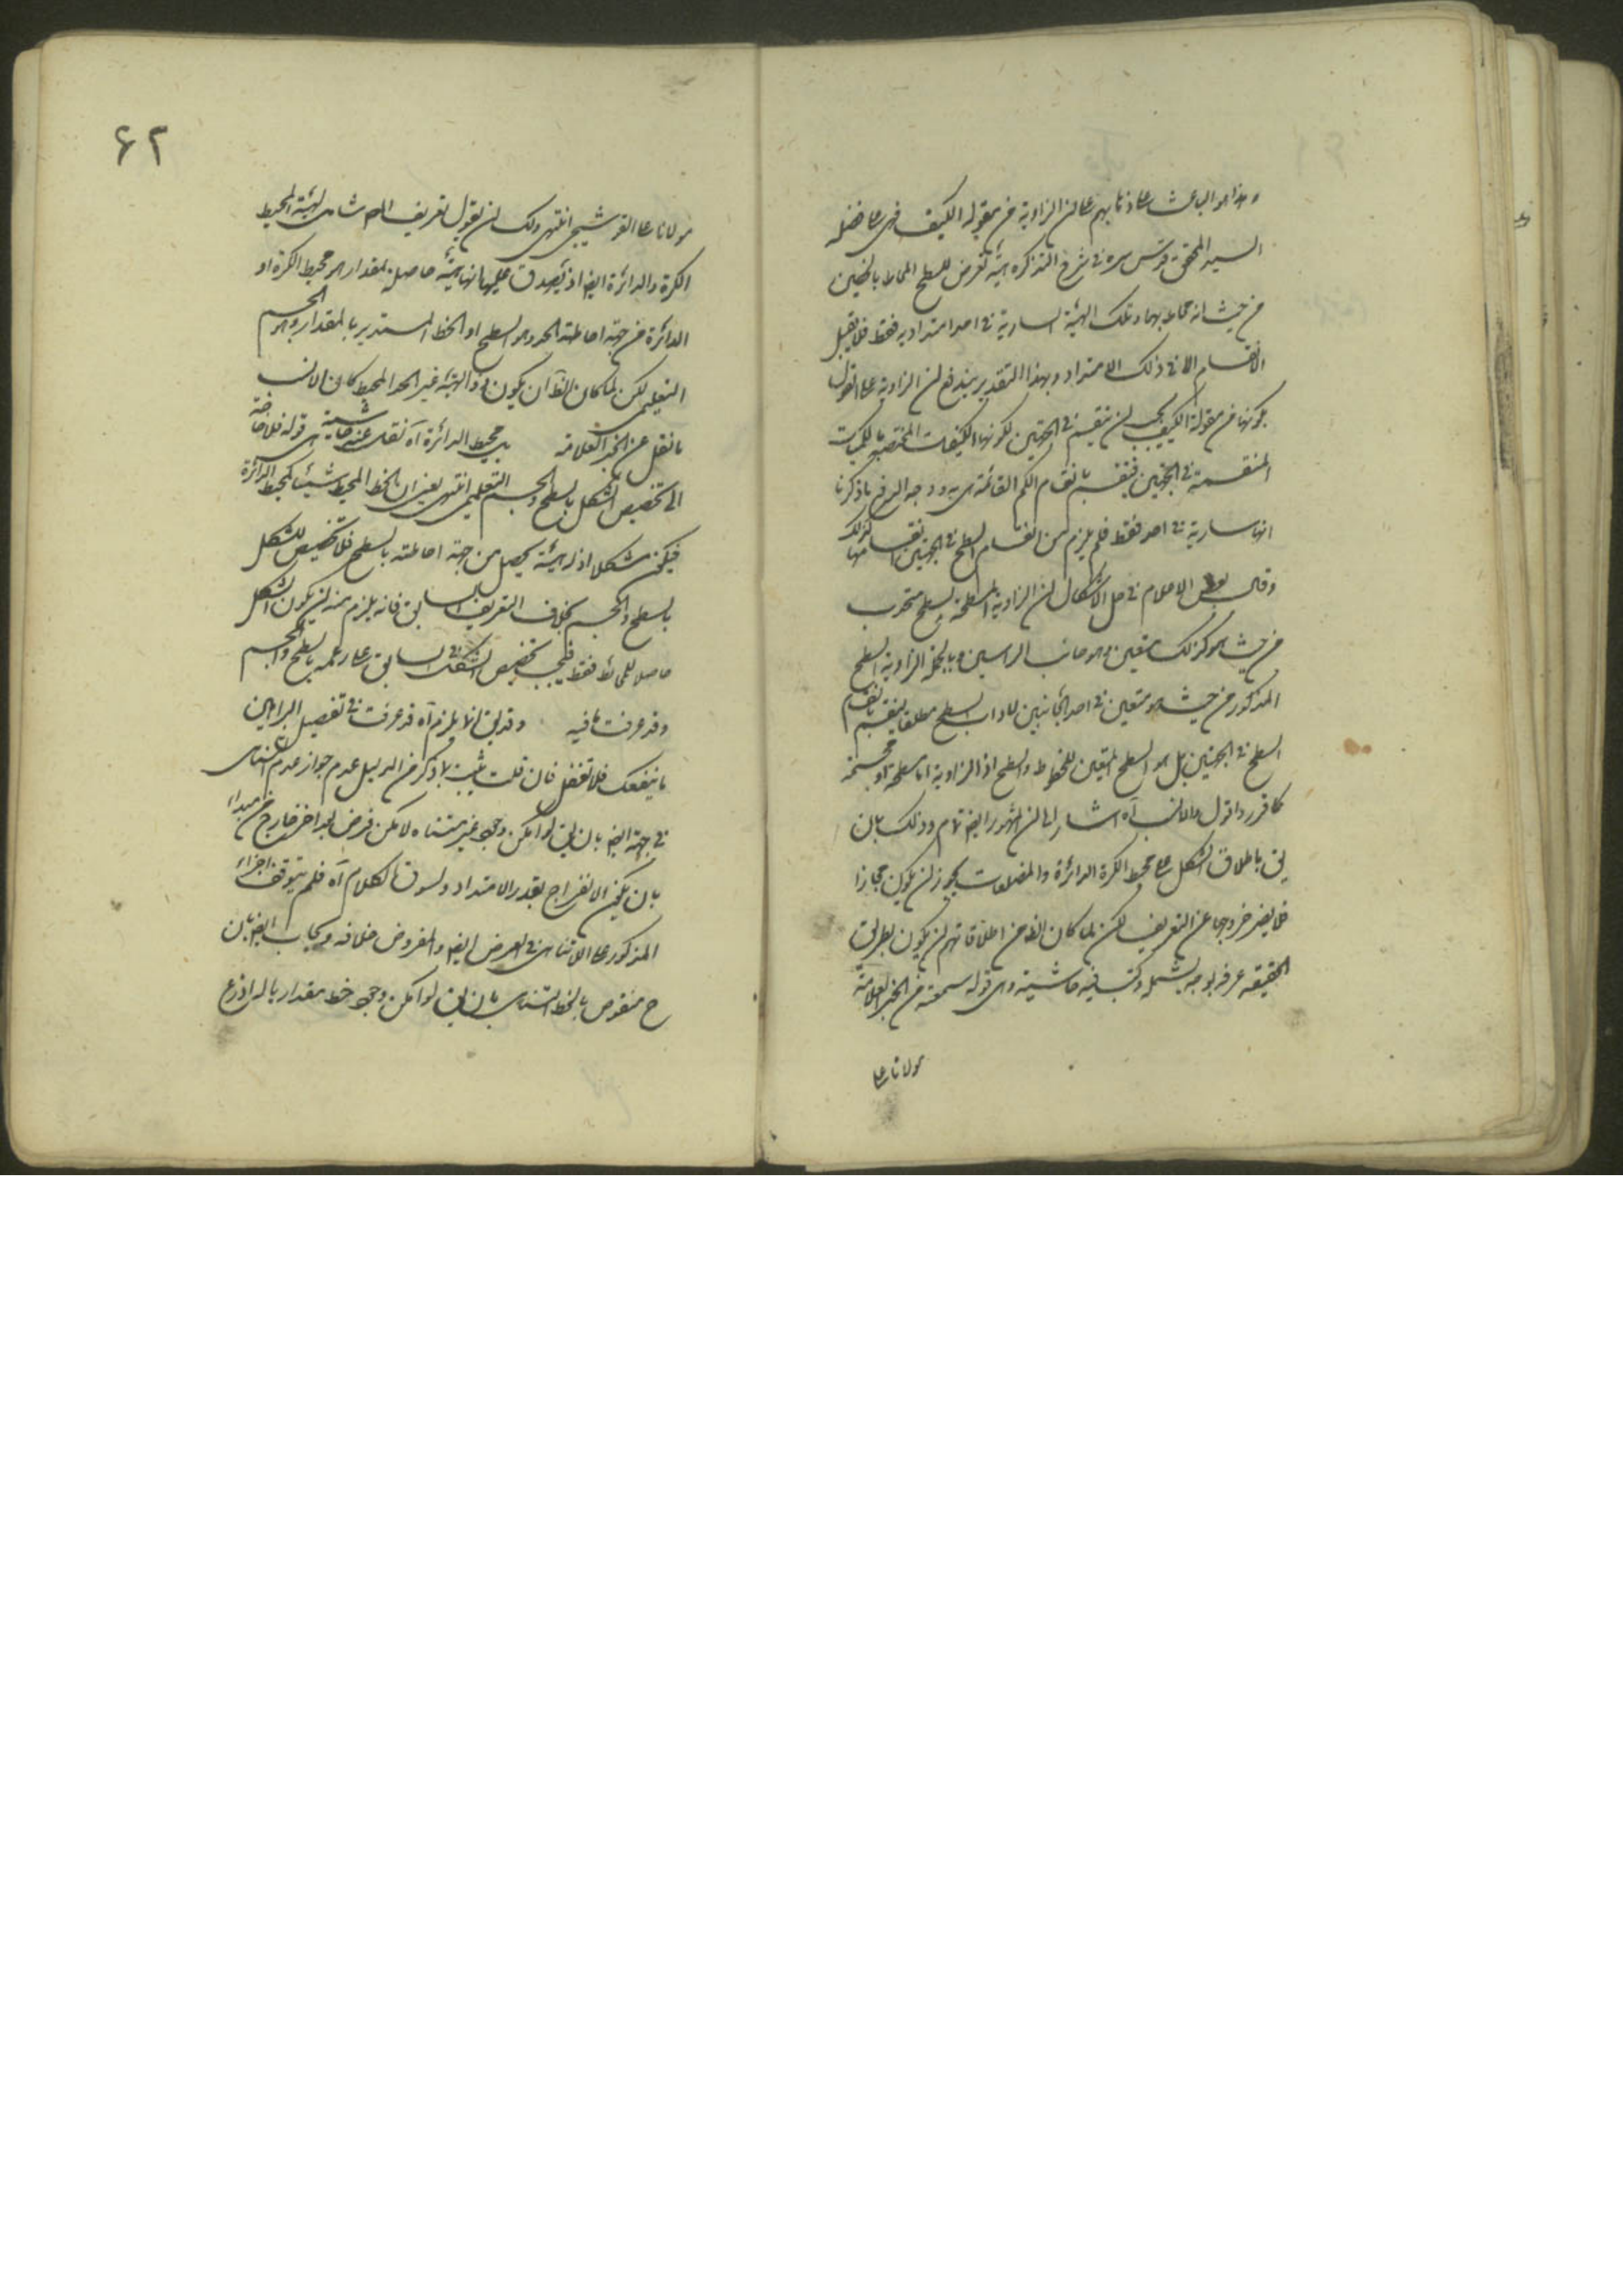 وهذا هو الباعث على ذهابهم على ان الزاوية من مقولة الكيف فهى على ما فصله
السيد المحقق قدس سره فى شرح التذكرة هيئة تعرض للسطح المحاط بالخطين
من حيث انه محاط بهما وتلك الهيئة السارية فى احد امتداديه فقط فلا يقبل
الانقسام الا فى ذلك الامتداد وبهذا التقدير يندفع ان الزاوية على القول
بكونها من مقولة الكيف يجب ان ينقسم فى الجهتين لكونها من الكيفيات المختصة بالكميات
المنقسمة فى الجهتين فينقسم بانقسام الكم القائمة هى به ووجه الدفع ما ذكرنا
انها سارية فى احد فقط فلم يلزم من انقسام السطح فى الجهتين انقسامها كذلك
وقال بعض الاعلام فى حل الاشكال ان الزاوية المسطحة سطح متحدب
من حيث هو كذلك متعين وهو جانب الراسين وبالجملة الزاوية السطح
المذكور من حيث هو متعين فى احد الجانبين لا ذات السطح مطلقا ينقسم بانقسام
السطح فى الجهتين بل هو السطح المتعين للخطوط والسطح اذ الزاوية اما مسطحة او مجسمة
كما قرر واقول والانسب آه اشار الى ان المشهور ايضا تام وذلك بان
يق باطلاق الشكل على محيط الكرة الدائرة والمضلعات يجوز ان يكون مجازا
فلا يضر خروجها عن التعريف لكن لما كان الظ من اطلاقاتهم ان يكون بطريق
الحقيقة عرفه بوجه يشمله وكتب فيه حاشية وهى قوله سمعته من الخبر العلامة
مولانا على
۶۲
مولانا على القوشجى انتهى ولك ان تقول تعريف المص شامل لهيئة المحيط
الكرة والدائرة ايضا اذ يصدق عليها انها هيئة حاصلة لمقدار هو محيط الكرة او
الدائرة من جهة احاطة الحد وهو السطح او الخط المستدير بالمقدار وهو الجسم
التعليمى لكن لما كان الظ ان يكون ذو الهيئة غير الحد المحيط كان الانسب
ما نقل عن الخبر العلامة بل محيط الدائرة آه نقل عنه حاشية هى قوله فلا حاجة
الى تخصيص الشكل بالسطح والجسم التعليمى انتهى يعنى ان بالخط المحيط شيئا كمحيط الدائرة
فيكون شكلا اذ له هيئة يحصل من جهة احاطته بالسطح فلا تخصيص للشكل
بالسطح والجسم بخلاف التعريف السابق فانه يلزم منه ان يكون الشكل
حاصلا للمحاط فقط فيجب تخصيص الشكل السابق على رغمه بالسطح والجسم
وقد عرفت ما فيه وقد يق انه لا يلزم آه قد عرفت فى تفصيل البراهين
ما ينفعك فلا تغفل فان قلت يثبت بما ذكر من الدليل عدم جواز عدم التناهى
فى جهة ايضا بان يق لو امكن وجود غير متناه لا مكن فرض بعد اخر خارج من مبداء
بان يكون الانفراج بقدر الامتداد ولسوق الكلام آه فلم يتوقف اجزاء
المذكور على اللاتناهى فى العرض ايضا والمفروض خلافه ويجاب ايضا بان
ح منقوض بالخط المتناهى بان يق لو امكن وجود خط مقدار باله اذرع